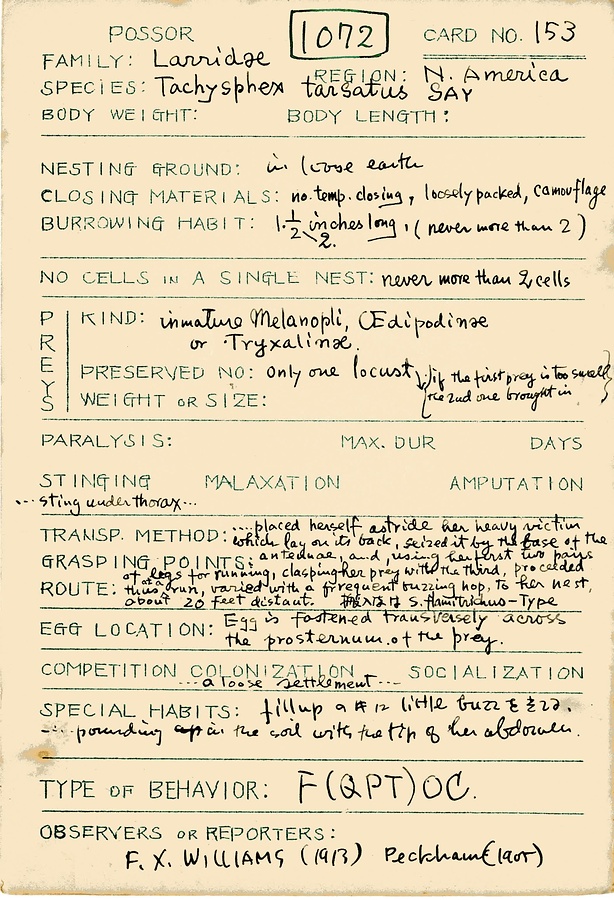 POSSOR 1072 CARD NO. 153
FAMILY: Larridae
REGION: N. America
SPECIES: Tachysphex tarsatus SAY
BODY WEIGHT: BODY LENGTH:
NESTING GROUND: in loose earth
CLOSING MATERIALS: no temp. closing, loosely packed, camouflage
BURROWING HABIT: 1·1/2 inches long, (never more than 2)
2.
NO CELLS IN A SINGLE NEST: never more than 2 cells
PREYS
KIND: inmature Melanopli, Œdipodinae
or Tryxalinae.
PRESERVED NO: only one locust, (if the first prey is too small
WEIGHT OR SIZE: the 2nd one brought in)
PARALYSIS: MAX. DUR DAYS
STINGING MALAXATION AMPUTATION
...sting under thorax...
TRANSP. METHOD: ....placed herself astride her heavy victim
which lay on its back, seized it by the base of the
GRASPING POINTS: antennae, and, using her first two pairs
of legs for running, clasping her prey with the third, proceeded
ROUTE: thus at a run, varied with a frequent buzzing hop, to her nest,
about 20 feet distant. S. -Type
EGG LOCATION: Egg is fastened transversely across
the prosternum of the prey.
COMPETITION COLONIZATION SOCIALIZATION
...a loose settlement...
SPECIAL HABITS: fill up little buzz
... pounding in the soil with the tip of her abdomen.
TYPE OF BEHAVIOR: F(QPT)OC.
OBSERVERS OR REPORTERS:
F. X. WILLIAMS (1913) Peckham (1905)